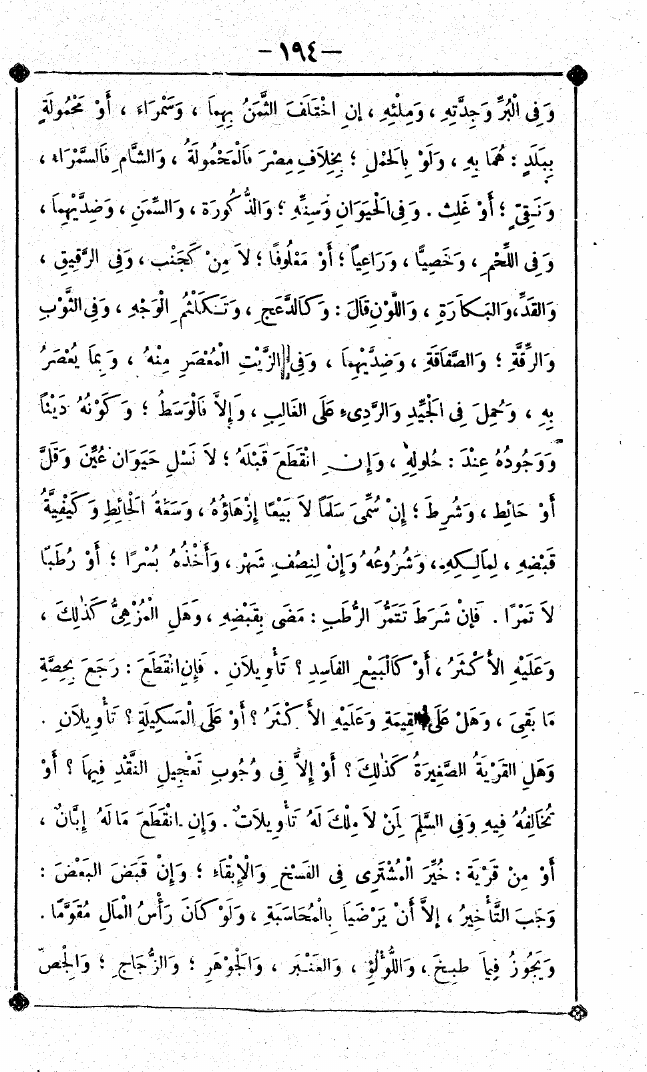 — ١٩٤ —
وَفِى الْبُرِّ وَجِدَّتِهِ ، وَمِلْئِهِ ، إِنِ اخْتَلَفَ الثَّمَنُ بِهِمَا ، وَسَمْرَاءَ ، أَوْ مَحْمُولَةٍ
بِبَلَدٍ : هُمَا بِهِ ، وَلَوْ بِالْحَمْلِ ؛ بِخِلَافِ مِصْرَ فَالْمَحْمُولَةُ ، وَالشَّامِ فَالسَّمْرَاءُ ،
وَنَقِىٍّ ؛ أَوْ غَلِثٍ . وَفِى الْحَيَوَانِ وَسِنِّهِ ؛ وَالذُّكُورَةِ ، وَالسِّمَنِ ، وَضِدَّيْهِمَا ،
وَفِى اللَّحْمِ ، وَخَصِيًّا ، وَرَاعِياً ؛ أَوْ مَعْلُوفًا ؛ لَا مِنْ كَجَنْبٍ ، وَفِى الرَّقِيقِ ،
وَالقَدِّ، وَالبَكَارَةِ ، وَاللَّوْنِ قَالَ : وَكَالدَّعَجِ ، وَتَكَلْثُمِ الْوَجْهِ ، وَفِى الثَّوْبِ
وَالرِّقَّةِ ؛ وَالصَّفَاقَةِ ، وَضِدَّيْهِمَا ، وَفِى الزَّيْتِ الْمُعْصَرِ مِنْهُ ، وَبِمَا يُعْصَرُ
بِهِ ، وَحُمِلَ فِى الْجَيِّدِ وَالرَّدِىءِ عَلَى الْغَالِبِ ، وَإِلَّا فَالْوَسَطُ ؛ وَكَوْنُهُ دَيْنًا
وَوُجُودُهُ عِنْدَ : حُلُولِهِ ، وَإِنِ انْقَطَعَ قَبْلَهُ ؛ لَا نَسْلِ حَيَوَانٍ عُيِّنَ وَقَلَّ
أَوْ حَائِطٍ ، وَشُرِطَ ؛ إِنْ سُمِّىَ سَلَماً لَا بَيْعًا إِزْهَاؤُهُ ، وَسَعَةُ الْحَائِطِ وَكَيْفِيَّةُ
قَبْضِهِ ، لِمَالِكِهِ، وَشُرُوعُهُ وَإِنْ لِنِصْفِ شَهْرٍ ، وَأَخْذُهُ بُسْرًا ؛ أَوْ رُطَبًا
لَا تَمْرًا . فَإِنْ شَرَطَ تَتَمُّرَ الرُّطَبِ : مَضَى بِقَبْضِهِ ، وَهَلِ الْمُزْهِىُّ كَذٰلِكَ ،
وَعَلَيْهِ الْأَكْثَرُ ، أَوْ كَالْبَيْعِ الفَاسِدِ ؟ تَأْوِيلَانِ . فَإِنِ انْقَطَعَ : رَجَعَ بِحِصَّةِ
مَا بَقِىَ ، وَهَلْ عَلَى القِيمَةِ وَعَلَيْهِ الْأَكْثَرُ ؟ أَوْ عَلَى الْمَكِيلَةِ ؟ تَأْوِيلَانِ .
وَهَلِ القَرْيَةُ الصَّغِيرَةُ كَذٰلِكَ ؟ أَوْ إِلَّا فِى وُجُوبِ تَعْجِيلِ النَّقْدِ فِيهَا ؟ أَوْ
تُخَالِفُهُ فِيهِ وَفِى السَّلَمِ لِمَنْ لَا مِلْكَ لَهُ تَأْوِيلَاتٌ . وَإِنِ انْقَطَعَ مَا لَهُ إِبَّانٌ ،
أَوْ مِنْ قَرْيَةٍ : خُيِّرَ الْمُشْتَرِى فِى الفَسْخِ وَالْإِبْقَاءِ ؛ وَإِنْ قَبَضَ البَعْضَ :
وَجَبَ التَّأْخِيرُ ، إِلَّا أَنْ يَرْضَيَا بِالْمُحَاسَبَةِ ، وَلَوْ كَانَ رَأْسُ الْمَالِ مُقَوَّمًا .
وَيَجُوزُ فِيمَا طُبِخَ ، وَاللُّؤْلُؤِ ، وَالعَنْبَرِ ، وَالْجَوْهَرِ ؛ وَالزُّجَاجِ ؛ وَالْجِصِّ